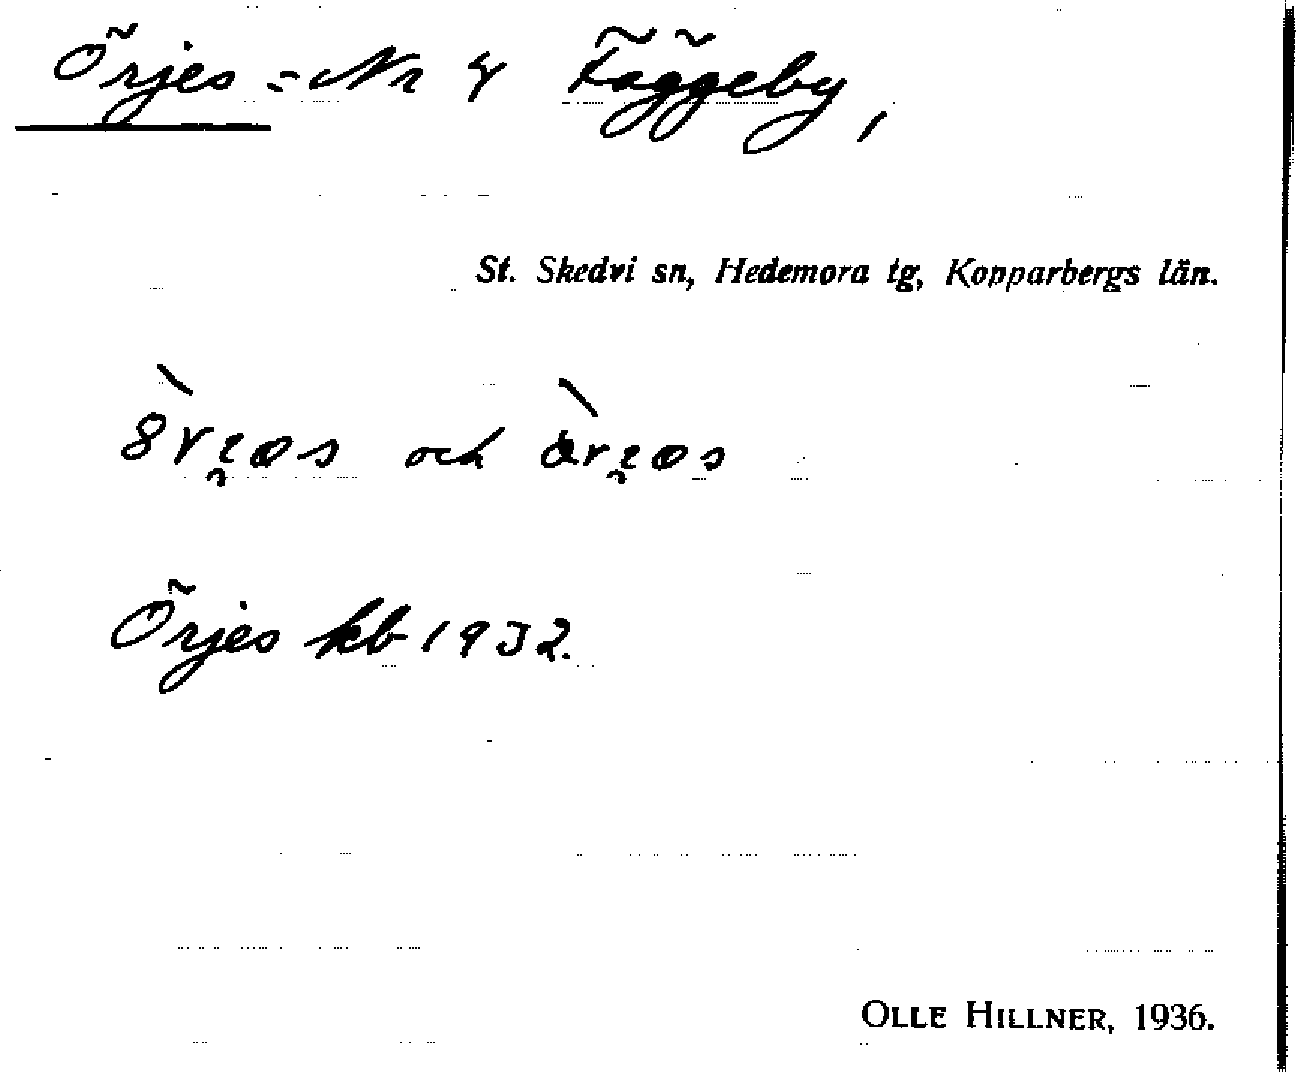 Örjes = Nr 8 Fäggeby,
St. Skedvi sn, Hedemora tg, Kopparbergs län.
och
Örjes kb 1932.
OLLE HILLNER, 1936.